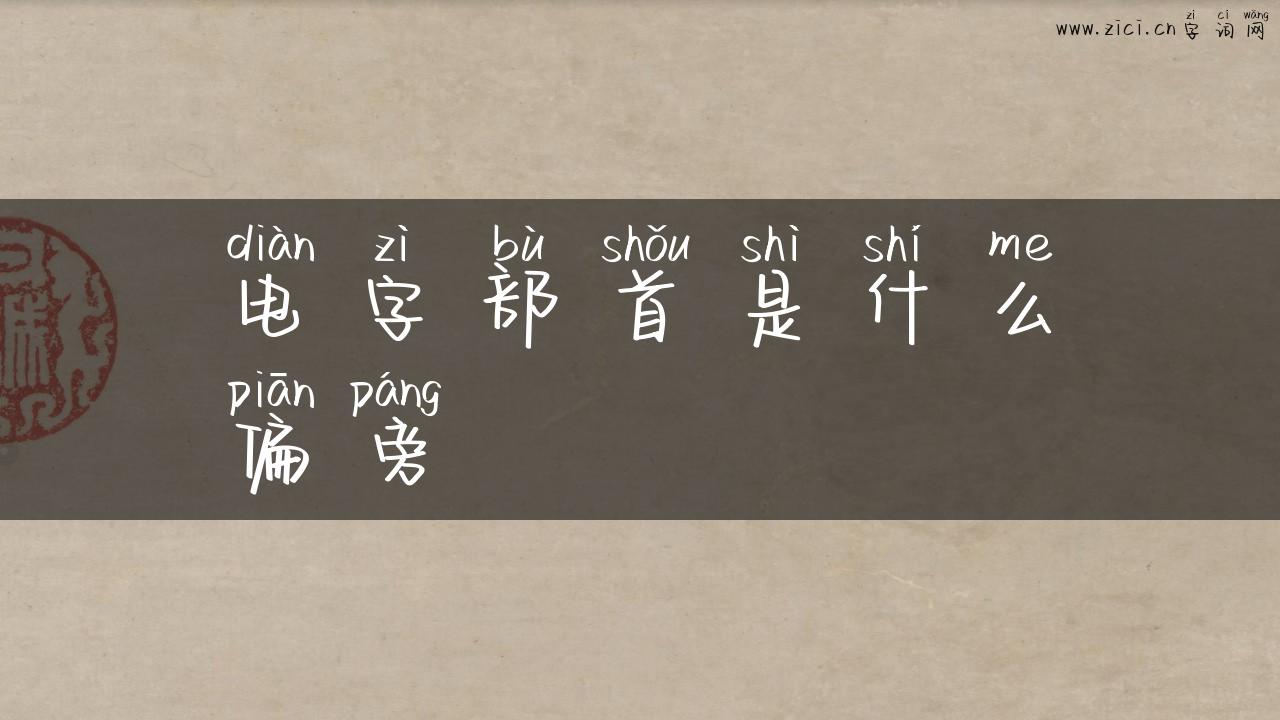 zì cí wǎng
www.zici.cn 字 词 网
diàn zì bù shǒu shì shí me
电 字 部 首 是 什 么
piān páng
偏 旁